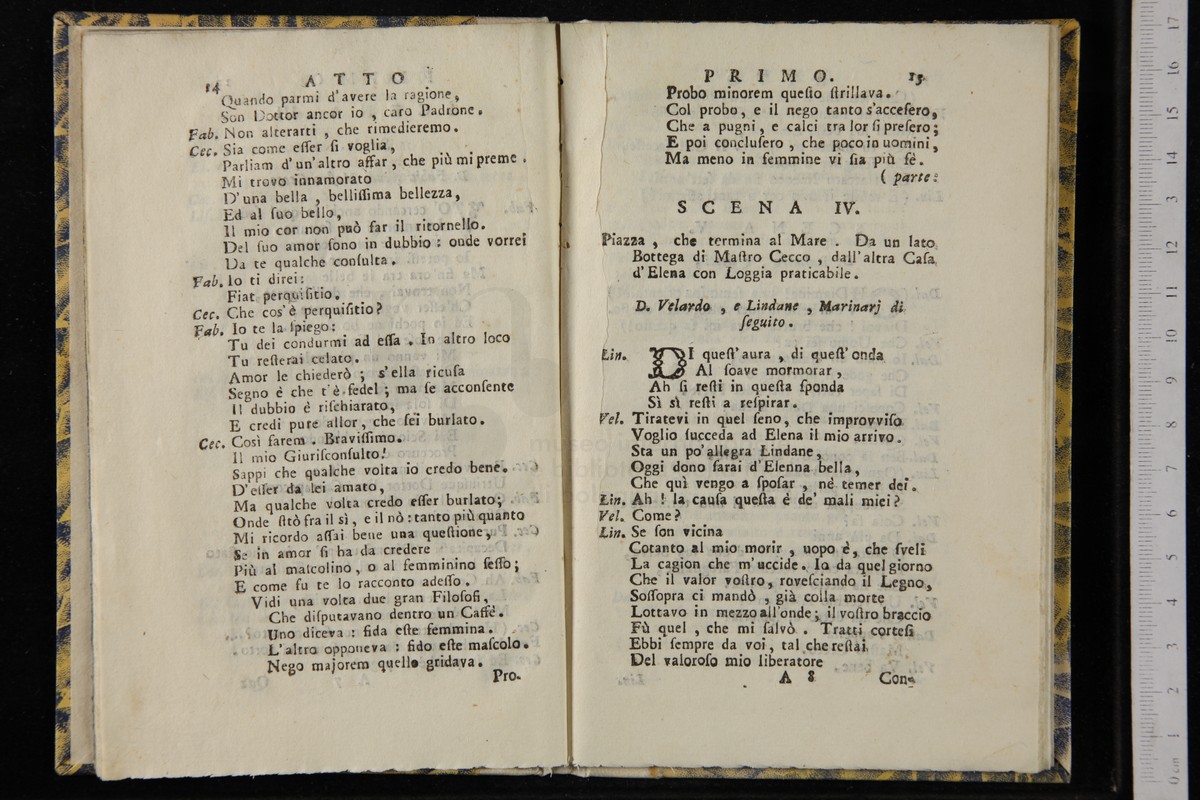 14 ATTO
Quando parmi d'avere la ragione,
Son Dottor ancor io , caro Padrone.
Fab. Non alterarti , che rimedieremo.
Cec. Sia come eſſer ſi voglia,
Parliam d'un'altro affar, che più mi preme .
Mi trovo innamorato
D'una bella , belliſſima bellezza,
Ed al ſuo bello,
Il mio cor non può far il ritornello.
Del ſuo amor ſono in dubbio : onde vorrei
Da te qualche conſulta.
Fab. Io ti direi:
Fiat perquiſitio.
Cec. Che cos'è perquiſitio?
Fab. Io te la ſpiego:
Tu dei condurmi ad eſſa . In altro loco
Tu reſterai celato.
Amor le chiederò ; s'ella ricuſa
Segno è che t'è fedel ; ma ſe acconſente
Il dubbio è riſchiarato,
E credi pure allor, che ſei burlato.
Cec. Così farem . Braviſſimo.
Il mio Giuriſconſulto!
Sappi che qualche volta io credo bene.
D'eſſer da lei amato,
Ma qualche volta credo eſſer burlato;
Onde ſtò fra il sì , e il nò : tanto più quanto
Mi ricordo aſſai bene una queſtione,
Se in amor ſi ha da credere
Più al maſcolino, o al femminino ſeſſo;
E come fu te lo racconto adeſſo.
Vidi una volta due gran Filoſofi,
Che diſputavano dentro un Caffè.
Uno diceva : fida eſte femmina.
L'altro opponeva : fido eſte maſcolo.
Nego majorem quello gridava.
Pro-
PRIMO. 15
Probo minorem queſto ſtrillava.
Col probo, e il nego tanto s'acceſero,
Che a pugni, e calci tra lor ſi preſero;
E poi concluſero , che poco in uomini,
Ma meno in femmine vi ſia più fè.
( parte:
SCENA IV.
Piazza , che termina al Mare . Da un lato
Bottega di Maſtro Cecco , dall'altra Caſa
d'Elena con Loggia praticabile.
D. Velardo , e Lindane , Marinarj di
ſeguito.
Lin. DI queſt'aura , di queſt'onda
Al ſoave mormorar,
Ah ſi reſti in queſta ſponda
Sì sì reſti a reſpirar.
Vel. Tiratevi in quel ſeno, che improvviſo
Voglio ſucceda ad Elena il mio arrivo.
Sta un po'allegra Lindane,
Oggi dono ſarai d'Elenna bella,
Che quì vengo a ſpoſar , né temer dei.
Lin. Ah ! la cauſa queſta è de' mali miei?
Vel. Come?
Lin. Se ſon vicina
Cotanto al mio morir , uopo è, che ſveli
La cagion che m'uccide. Io da quel giorno
Che il valor voſtro, roveſciando il Legno,
Soſſopra ci mandò , già colla morte
Lottavo in mezzo all'onde; il voſtro braccio
Fù quel , che mi ſalvò . Tratti corteſi
Ebbi ſempre da voi, tal che reſtai
Del valoroſo mio liberatore
A 8 Con-